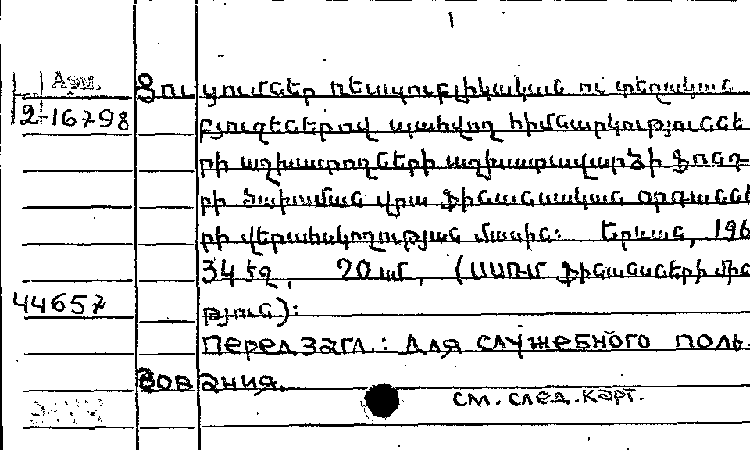 1
Арм. Ցուցումներ ռեսպուբլիկական ու տեղական
2-16798 բյուջեներով պահվող հիմնարկություննե
րի աշխատողների աշխատավարձի ֆոնդ
րի ծախսման վրա ֆինանսական օրգաննե
րի վերահսկողության մասին: Երևան, 196
34 էջ, 20 սմ, (ՍՍՌՄ ֆինանսների մին
44657 թյուն):
Перед загл.: Для служебного поль
зования.
см. след. карт.